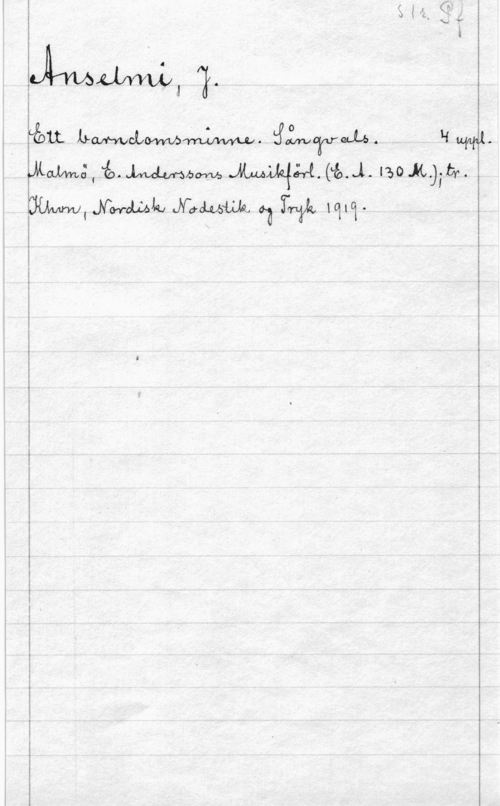 Str. Pf
Anselmi, J.
Ett barndomsminne. Sångvals. 4 uppl.
Malmö, E. Anderssons Musikförl. (E. A. 130 M.); tr.
Khvn, Nordisk Nodestik og Tryk 1919.